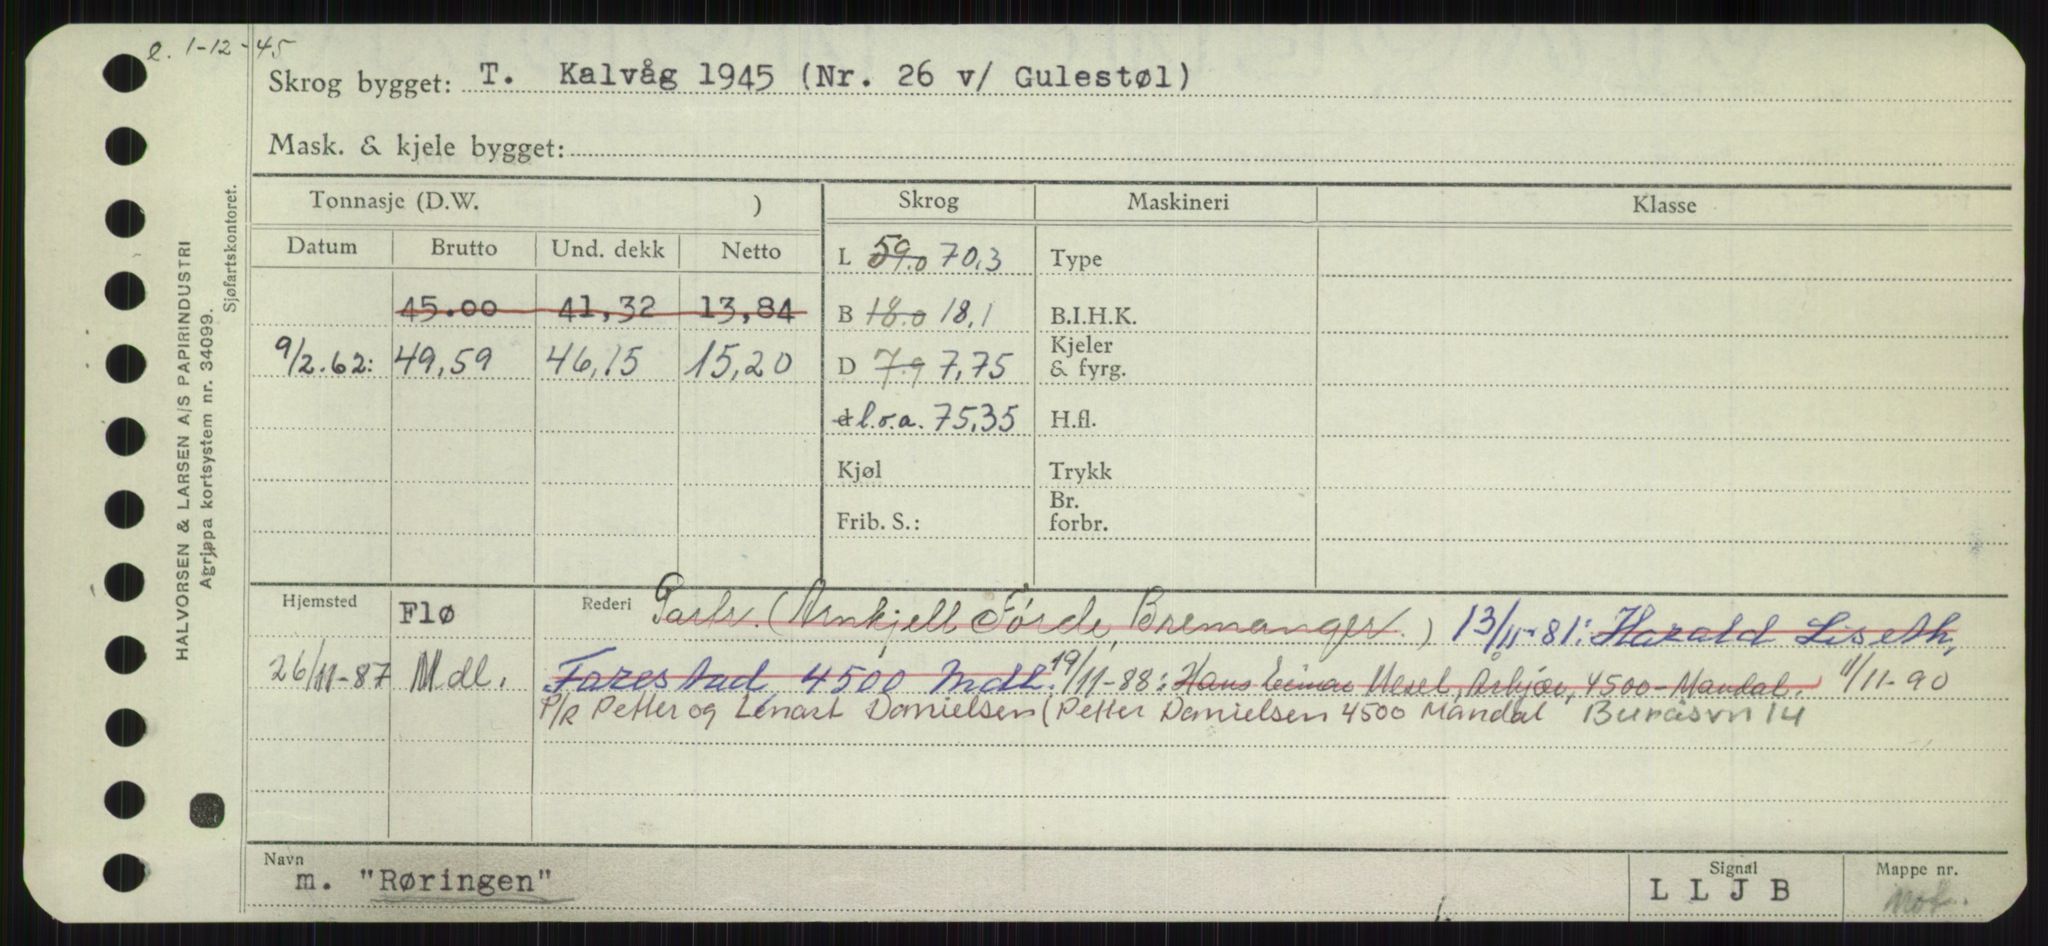 e. 1-12-45
Skrog bygget: T. Kalvåg 1945 (Nr. 26 v/ Gulestøl)
Mask. & kjele bygget:
HALVORSEN & LARSEN A/S PAPIRINDUSTRI
Agrippa kortsystem nr. 34099.
Sjøfartskontoret.
Tonnasje (D.W. ) Skrog Maskineri Klasse
Datum Brutto Und. dekk Netto L 59.0 70,3 Type
45.00 41,32 13,84 B 18.0 18,1 B.I.H.K.
9/2.62: 49,59 46,15 15,20 D 7.9 7,75 Kjeler & fyrg.
d l.o.a. 75,35 H.fl.
Kjøl Trykk
Frib. S.: Br. forbr.
Hjemsted Flø Rederi Partr. (Arnkjell Førde, Bremanger.) 13/11-81: Harald Liseth,
26/11-87 Mdl. Farestad 4500 Mdl. 19/11-88: Hans Einar Usel, 4500-Mandal. 1/11-90
P/R Petter og Lenart Danielsen (Petter Danielsen 4500 Mandal Buråsvn 14
Navn m. "Røringen" Signal L L J B Mappe nr. Mot.